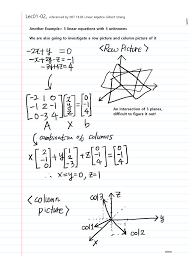 Lec01-02, referenced by MIT 18.06 Linear Algebra Gilbert Strang
Another Example: 3 linear equations with 3 unknowns.
We are also going to investigate a row picture and column picture of it
-2x+y =0 <Row Picture>
-x+2y-z=-1
-3y+4z=4
[-2 1 0] [x] [0]
[-1 2 -1] [y] = [-1]
[0 -3 4] [z] [4]
A x b
An intersection of 3 planes,
difficult to figure it out!
↓ combination of columns
x[2 -1 0] + y[1 2 -3] + z[0 -1 4] = [0 -1 4]
∴ x=y=0, z=1
<column
picture>
col3 z
y
col1 col2
x